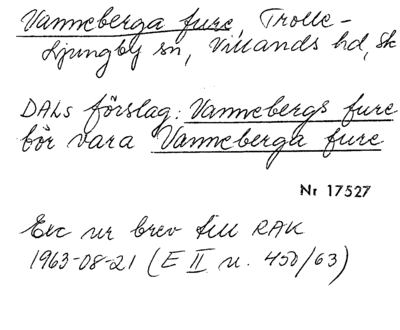 Vanneberga fure, Trolle-
Ljungby sn, Villands hd, Sk
DALs förslag: Vannebergs fure
bör vara Vanneberga fure
Nr 17527
Exc ur brev till RAK
1963-08-21 (E II u. 450/63)